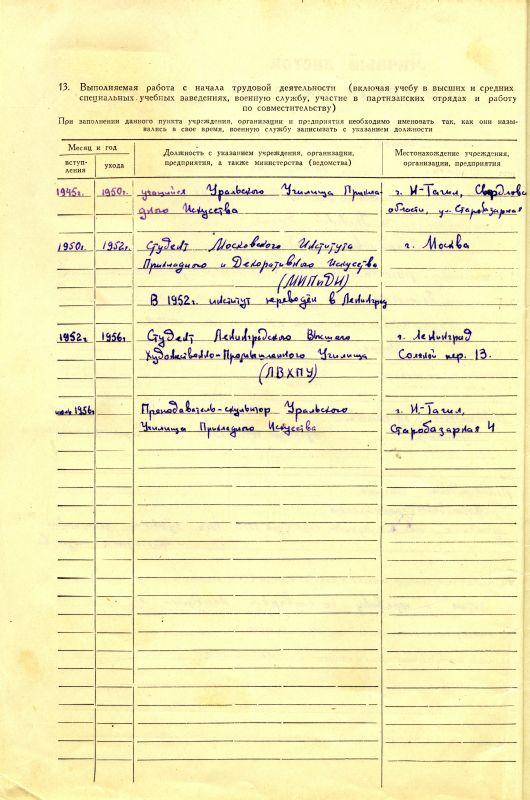 13. Выполняемая работа с начала трудовой деятельности (включая учебу в высших и средних
специальных учебных заведениях, военную службу, участие в партизанских отрядах и работу
по совместительству)
При заполнении данного пункта учреждения, организации и предприятия необходимо именовать так, как они назы-
вались в свое время, военную службу записывать с указанием должности
Месяц и год
вступ-
ления
ухода
Должность с указанием учреждения, организации,
предприятия, а также министерства (ведомства)
Местонахождение учреждения,
организации, предприятия
1945г. 1950г. учащийся Уральского Училища Прикла- г. Н-Тагил, Свердловс
дного Искусства области, ул. Старобазарная
1950г. 1952г. Студент Московского Института г. Москва
Прикладного и Декоративного Искусства
(МИПиДИ)
В 1952г. институт переведён в Ленинград
1952г 1956г Студент Ленинградского Высшего г. Ленинград
Художественно-Промышленного Училища Соляной пер. 13.
(ЛВХПУ)
июль 1956г Преподаватель-скульптор Уральского г. Н-Тагил,
Училища Прикладного Искусства Старобазарная 4